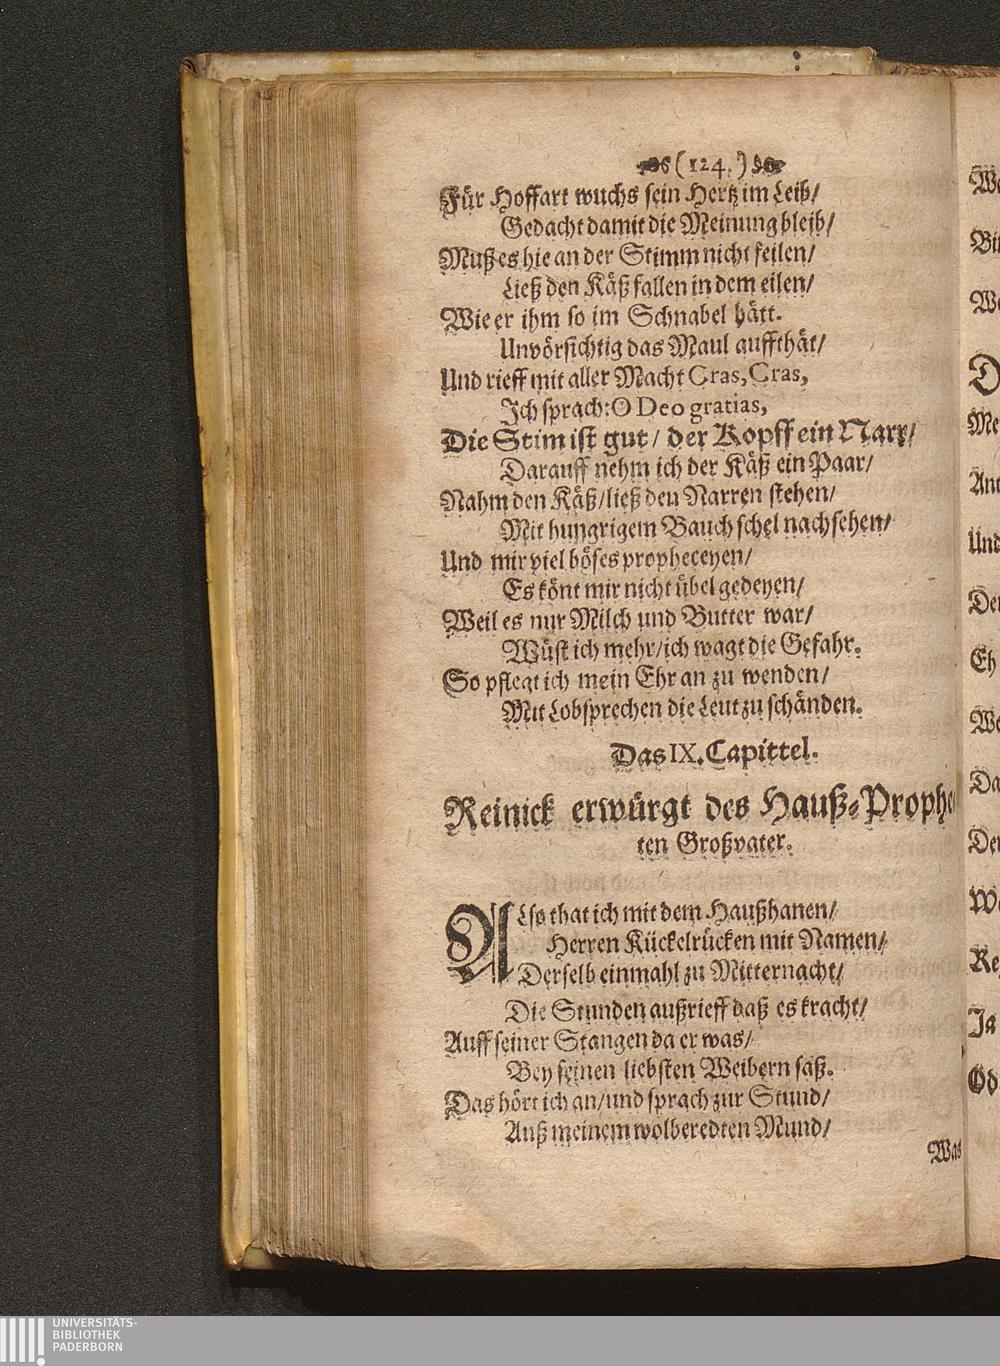 (124.)
Für Hoffart wuchs sein Hertz im Leib/
Gedacht damit die Meinung bleib/
Muß es hie an der Stimm nicht feilen/
Ließ den Käß fallen in dem eilen/
Wie er ihm so im Schnabel hätt.
Unvörsichtig das Maul auffthät/
Und rieff mit aller Macht Cras, Cras,
Ich sprach: O Deo gratias,
Die Stim ist gut/ der Kopff ein Narr/
Darauff nehm ich der Käß ein Paar/
Nahm den Käß/ ließ den Narren stehen/
Mit hungrigem Bauch schel nachsehen/
Und mir viel böses propheceyen/
Es könt mir nicht übel gedeyen/
Weil es nur Milch und Butter war/
Wüst ich mehr/ ich wagt die Gefahr.
So pflegt ich mein Ehr an zu wenden/
Mit Lobsprechen die Leut zu schänden.
Das IX. Capittel.
Reinick erwürgt des Hauß-Prophe
ten Großvater.
ALso that ich mit dem Haußhanen/
Herren Kückelrücken mit Namen/
Derselb einmahl zu Mitternacht/
Die Stunden außrieff daß es kracht/
Auff seiner Stangen da er was/
Bey seinen liebsten Weibern saß.
Das hört ich an/ und sprach zur Stund/
Auß meinem wolberedten Mund/
Was
Bi
We
D
Me
Ant
Und
Der
Eh
We
Da
Der
We
Re
Ja
Od
UNIVERSITÄTS-
BIBLIOTHEK
PADERBORN